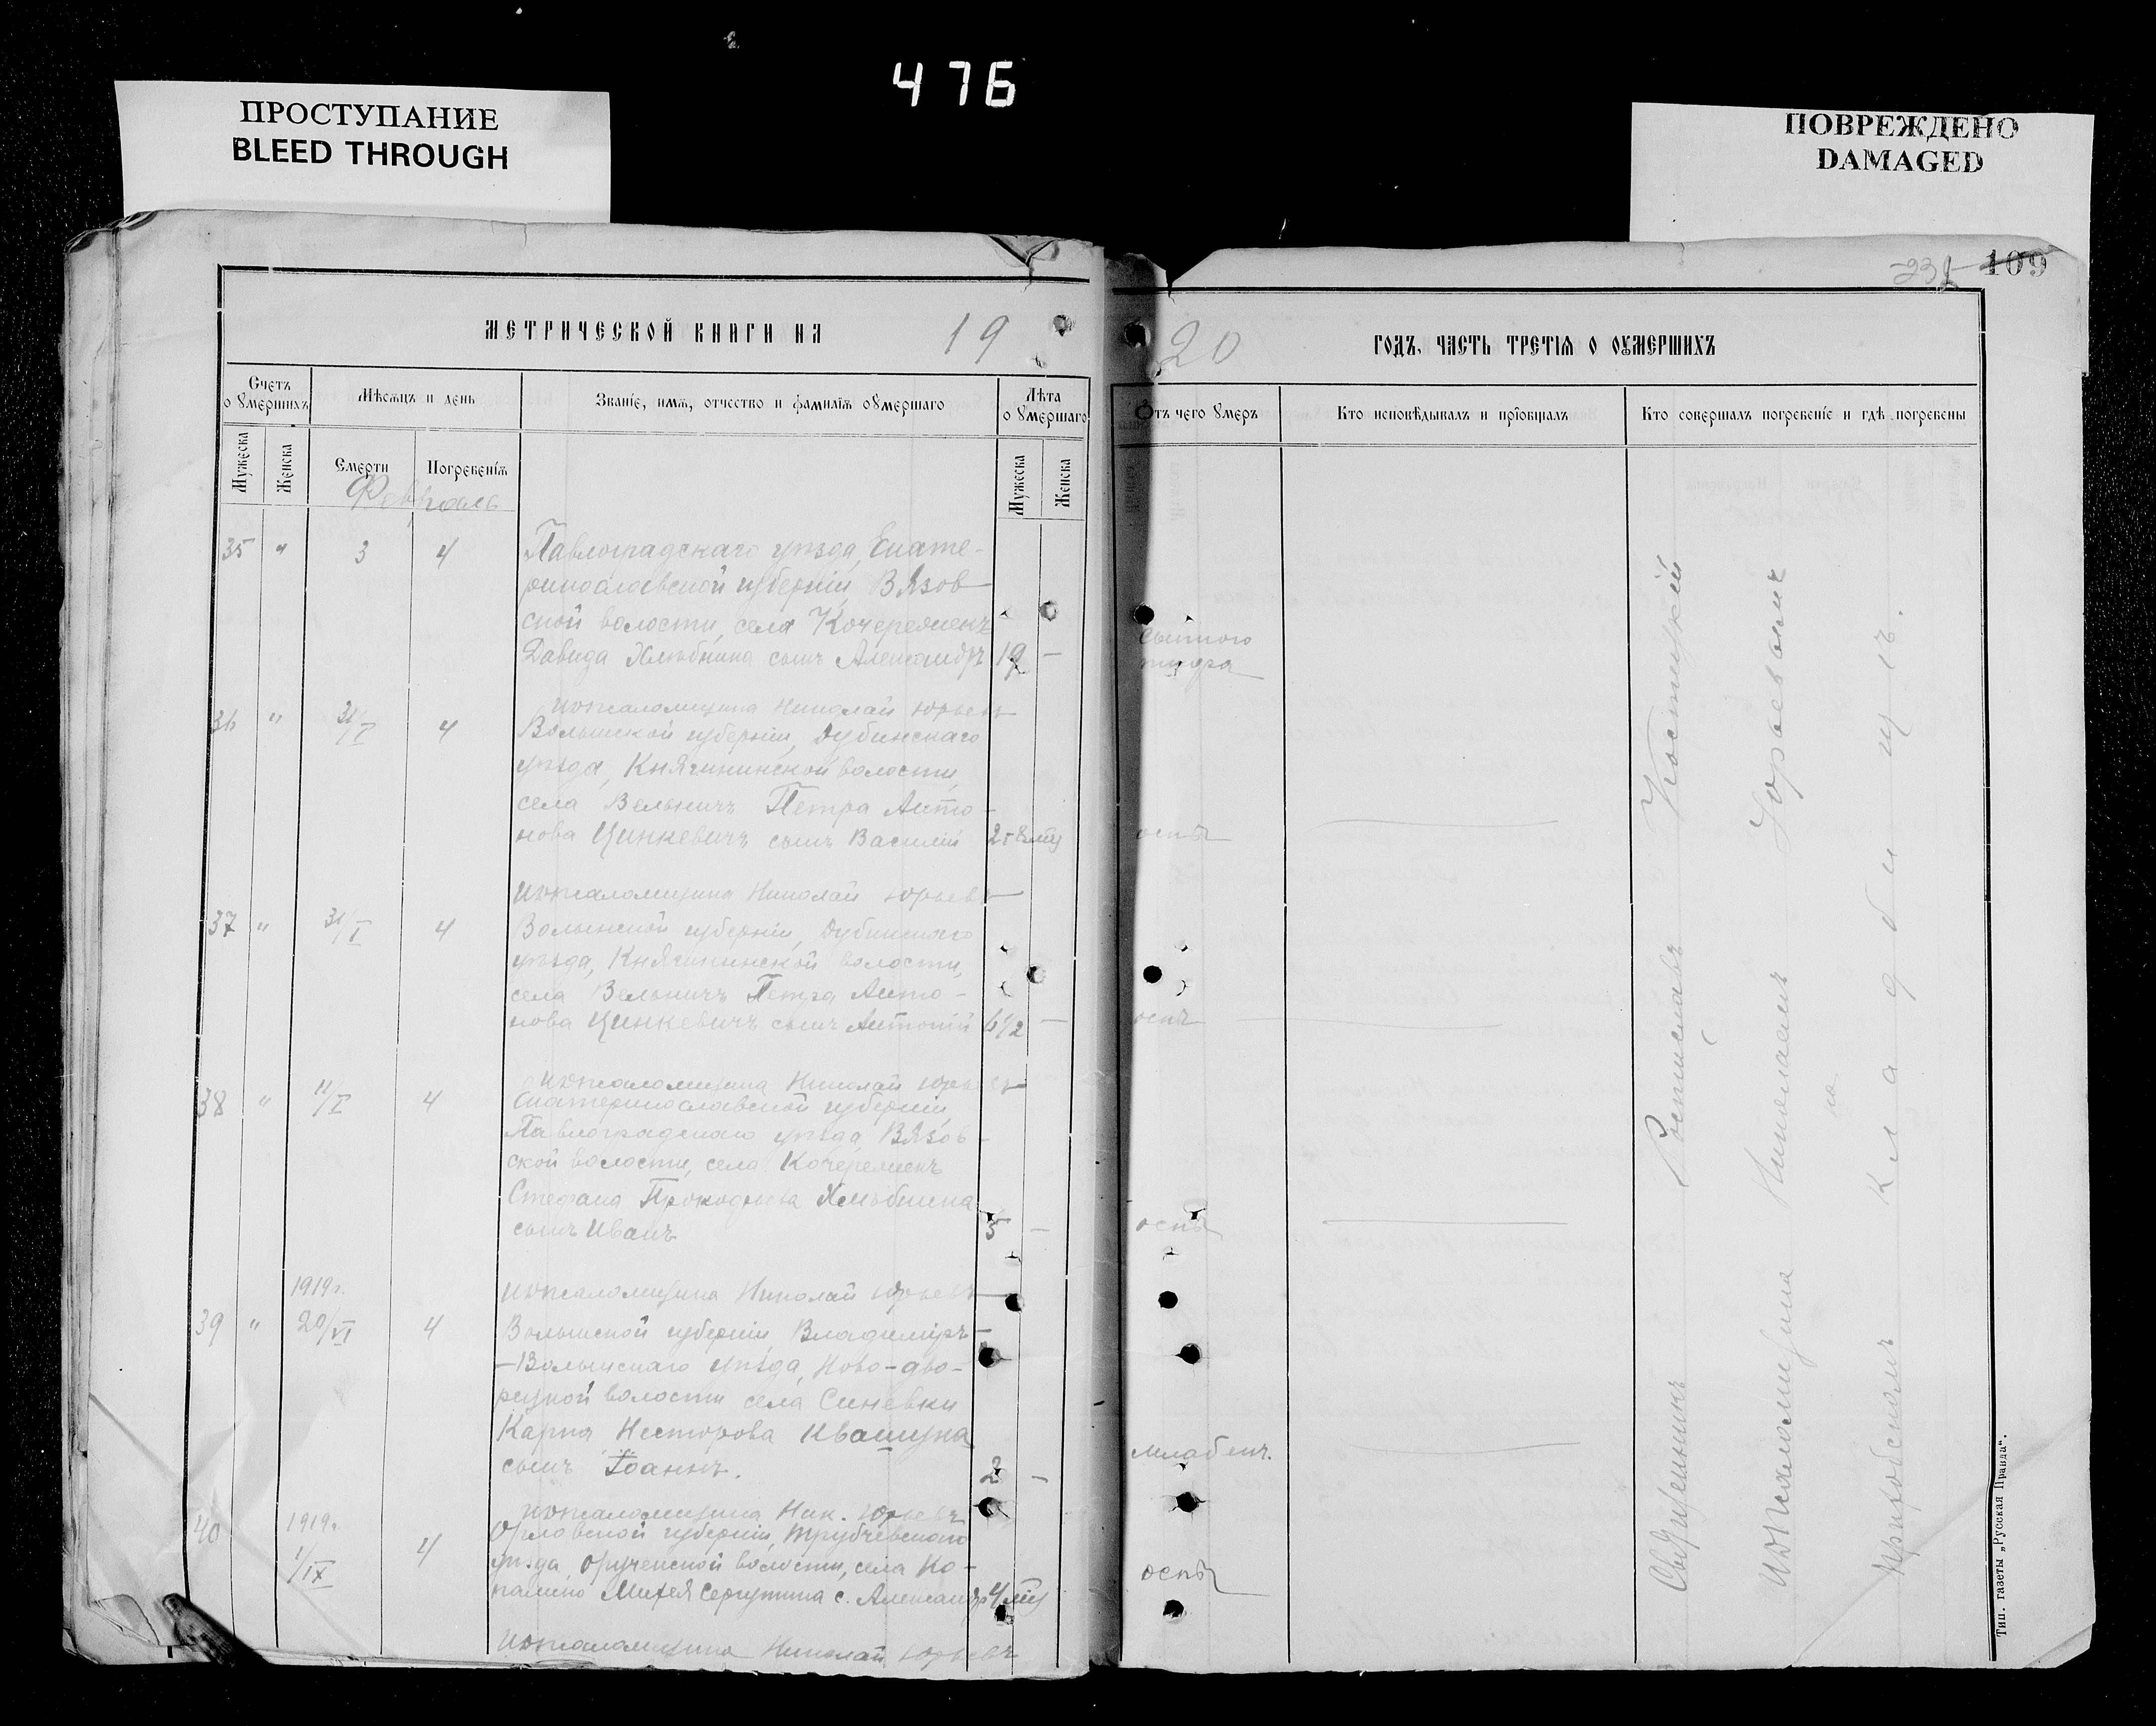 476
ПРОСТУПАНИЕ
BLEED THROUGH
ПОВРЕЖДЕНО
DAMAGED
109
МЕТРИЧЕСКОЙ КНИГИ НА 19
20 ГОДЪ, ЧАСТЬ ТРЕТІЯ О ОУМЕРШИХЪ
Счетъ о умершихъ
Мѣсяцъ и день
Званіе, имя, отчество и фамилія оумершаго
Лѣта оумершаго
Отъ чего умеръ
Кто исповѣдывалъ и пріобщалъ
Кто совершалъ погребеніе и гдѣ погребены
Мужеска
Женска
Смерти
Погребенія
Мужеска
Женска
Февраль
35 " 3 4 Павлоградскаго уѣзда, Екате-
ринославской губерніи, Вязов
ской волости, села Кочережекъ
Давида Хлѣбника сынъ Александръ 19 —
сыпного
тифа
псаломщика Николай Юрьевъ
36 " 31/I 4 Волынской губерніи, Дубинскаго
уѣзда, Княгининской волости,
села Вельбичъ Петра Анто-
нова Цинкевичъ сынъ Василій 2-8 мѣс оспы
псаломщика Николай Юрьевъ
37 " 31/I 4 Волынской губерніи, Дубинскаго
уѣзда, Княгининской волости,
села Вельбичъ Петра Анто-
нова Цинкевичъ сынъ Антоній 6 1/2 — оспы
псаломщика Николай Юрьевъ
38 " 4 Екатеринославской губерніи
Павлоградскаго уѣзда Вязов-
ской волости, села Кочережекъ
Стефана Прокофьева Хлѣбника
сынъ Иванъ 5 — оспы
псаломщика Николай Юрьевъ
1919г.
39 " 20/VI 4 Волынской губерніи, Владиміръ-
-Волынскаго уѣзда, Ново-дво-
рецкой волости села Синевки
Карпа Несторова Квашука
сынъ Іоаннъ. 2 - младенч.
псаломщика Ник. Юрьевъ
40 1919г. 1/IX 4 Орловской губерніи, Трубчевскаго
уѣзда, волости, села
с. Александръ 4 мѣс оспы
псаломщика Николай Юрьевъ
Священникъ Ростиславъ
псаломщика Николаемъ Юрьевымъ
на
приходскомъ кладбищѣ.
Тип. газеты „Русская Правда".